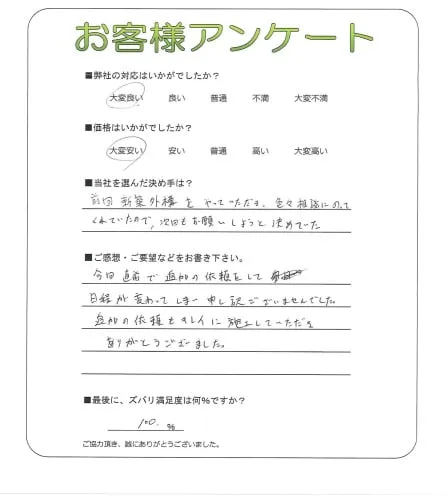 お客様アンケート
■弊社の対応はいかがでしたか？
大変良い 良い 普通 不満 大変不満
■価格はいかがでしたか？
大変安い 安い 普通 高い 大変高い
■当社を選んだ決め手は？
前回 新築外構を やっていただき、色々相談にのって
くれていたので、次回もお願いしようと決めていた
■ご感想・ご要望などをお書き下さい。
今回 直前で追加の依頼をして
日程が変わってしまい申し訳ございませんでした。
追加の依頼もキレイに施工していただき
ありがとうございました。
■最後に、ズバリ満足度は何％ですか？
100. ％
ご協力頂き、誠にありがとうございました。